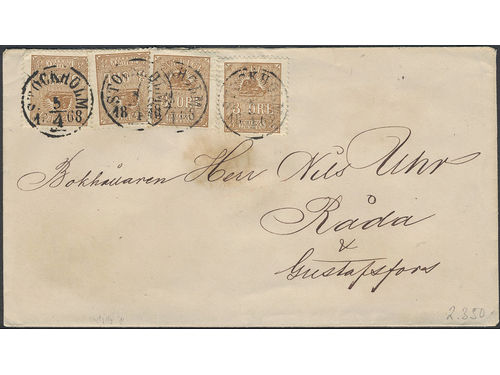 STOCKHOLM
5
4
1868
STOCKHOLM
18 68
3 ÖRE
Bokhållaren Herr Nils Uhr
Råda
&
Gustafsfors
2.350